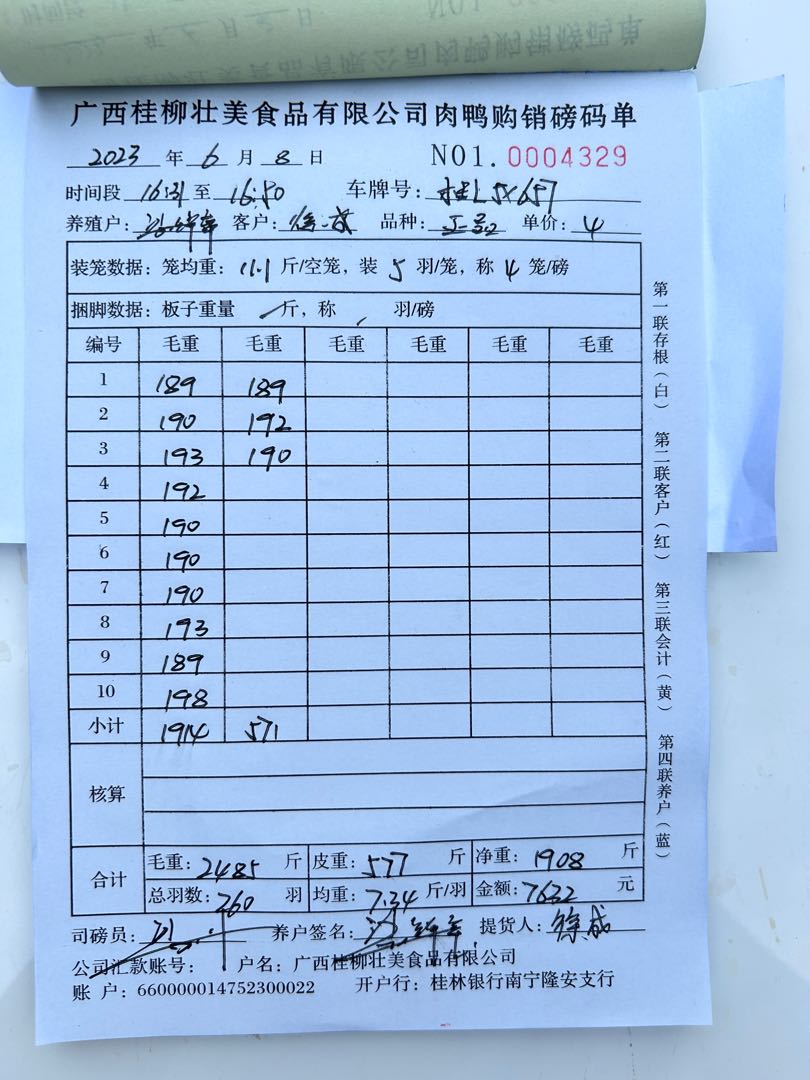 广西桂柳壮美食品有限公司肉鸭购销磅码单
2023 年 6 月 8 日 NO1.0004329
时间段 16:31 至 16:50 车牌号: 桂L5X657
养殖户: 客户: 品种: 单价: 4
装笼数据: 笼均重: 11.1 斤/空笼, 装 5 羽/笼, 称 4 笼/磅
捆脚数据: 板子重量 斤, 称 羽/磅
编号 毛重 毛重 毛重 毛重 毛重 毛重
1 189 189
2 190 192
3 193 190
4 192
5 190
6 190
7 190
8 193
9 189
10 198
小计 1914 571
核算
合计 毛重: 2485 斤 皮重: 577 斤 净重: 1908 斤
总羽数: 260 羽 均重: 7.34 斤/羽 金额: 7632 元
司磅员: 养户签名: 提货人: 徐成
公司汇款账号: 户名: 广西桂柳壮美食品有限公司
账 户: 660000014752300022 开户行: 桂林银行南宁隆安支行
第一联存根(白) 第二联客户(红) 第三联会计(黄) 第四联养户(蓝)